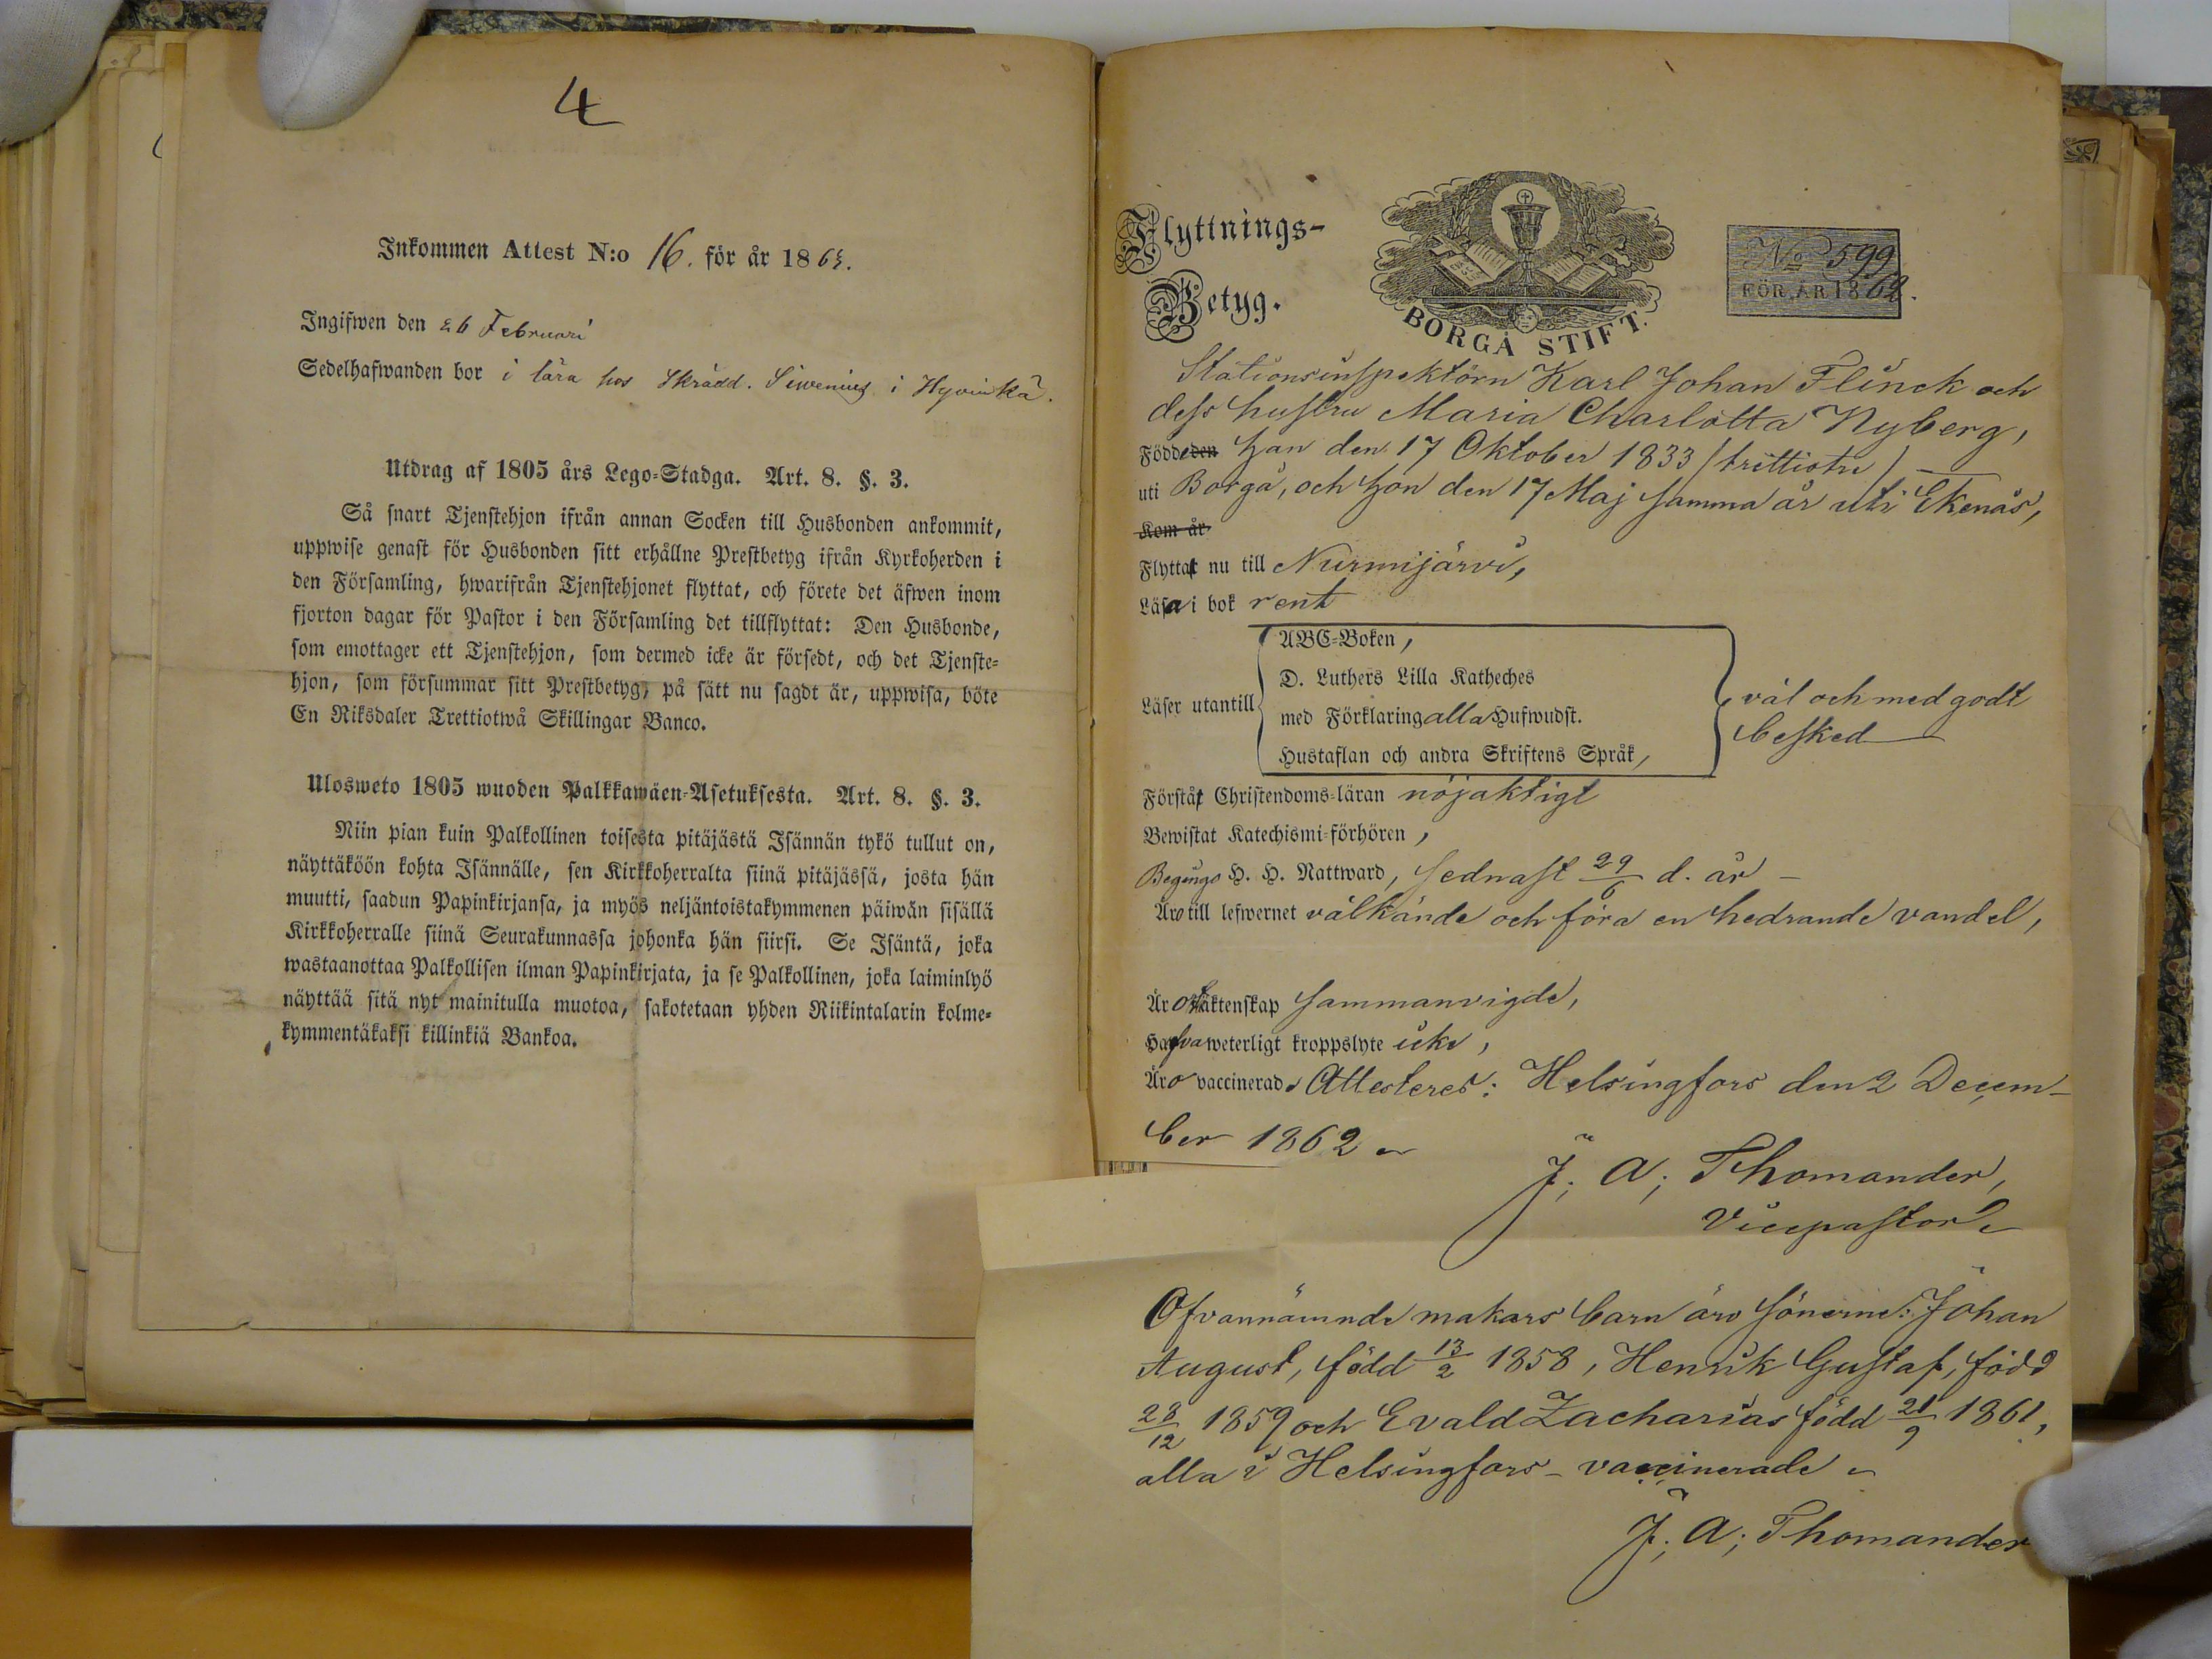 4
Inkommen Attest N:o 16. för år 186
Ingifwen den 26 Februari
Sedelhafwanden bor i lära hos Skrädd. Siwenius i Hyvinkä.
Utdrag af 1805 års Lego-Stadga. Art. 8. §. 3.
Så snart Tjenstehjon ifrån annan Socken till Husbonden ankommit,
uppwise genast för Husbonden sitt erhållne Prestbetyg ifrån Kyrkoherden i
den Församling, hwarifrån Tjenstehjonet flyttat, och förete det äfwen inom
fjorton dagar för Pastor i den Församling det tillflyttat: Den Husbonde,
som emottager ett Tjenstehjon, som dermed icke är försedt, och det Tjenste-
hjon, som försummar sitt Prestbetyg, på sätt nu sagdt är, uppwisa, böte
En Riksdaler Trettiotwå Skillingar Banco.
Ulosweto 1805 wuoden Palkkawäen-Asetuksesta. Art. 8. §. 3.
Niin pian kuin Palkollinen toisesta pitäjästä Isännän tykö tullut on,
näyttäköön kohta Isännälle, sen Kirkkoherralta siinä pitäjässä, josta hän
muutti, saadun Papinkirjansa, ja myös neljäntoistakymmenen päiwän sisällä
Kirkkoherralle siinä Seurakunnassa johonka hän siirsi. Se Isäntä, joka
wastaanottaa Palkollisen ilman Papinkirjata, ja se Palkollinen, joka laiminlyö
näyttää sitä nyt mainitulla muotoa, sakotetaan yhden Riikintalarin kolme-
kymmentäkaksi killinkiä Bankoa.
Flyttnings-
Betyg.
BORGÅ STIFT.
No 599
FÖR ÅR 1862.
Stationsinspektörn Karl Johan Flinck och
dess hustru Maria Charlotta Nyberg,
Födde den han den 17 Oktober 1833 (trittiotre) —
uti Borgå, och hon den 17 Maj samma år uti Ekenäs,
Kom år
Flytta nu till Nurmijärvi,
Läsa i bok rent
ABC-Boken,
D. Luthers Lilla Katheches
Läser utantill med Förklaring alla Hufwudst.
Hustaflan och andra Skriftens Språk,
väl och med godt
besked
Förstå Christendoms-läran nöjaktigt
Bewistat Katechismi-förhören,
Begingo H. H. Nattward, sednast 29/6 d. år —
Äro till lefwernet välkände och föra en hedrande vandel,
Äro äktenskap sammanvigde,
Hafva weterligt kroppslyte icke,
Äro vaccinerade Attesteres: Helsingfors den 2 Decem-
ber 1862
J. A. Thomander,
Vicepastor
Ofvannämnde makars barn äro sönerne: Johan
August, född 13/2 1858, Henrik Gustaf, född
28/12 1859 och Evald Zacharias född 21/9 1861,
alla i Helsingfors – vaccinerade
J. A. Thomander